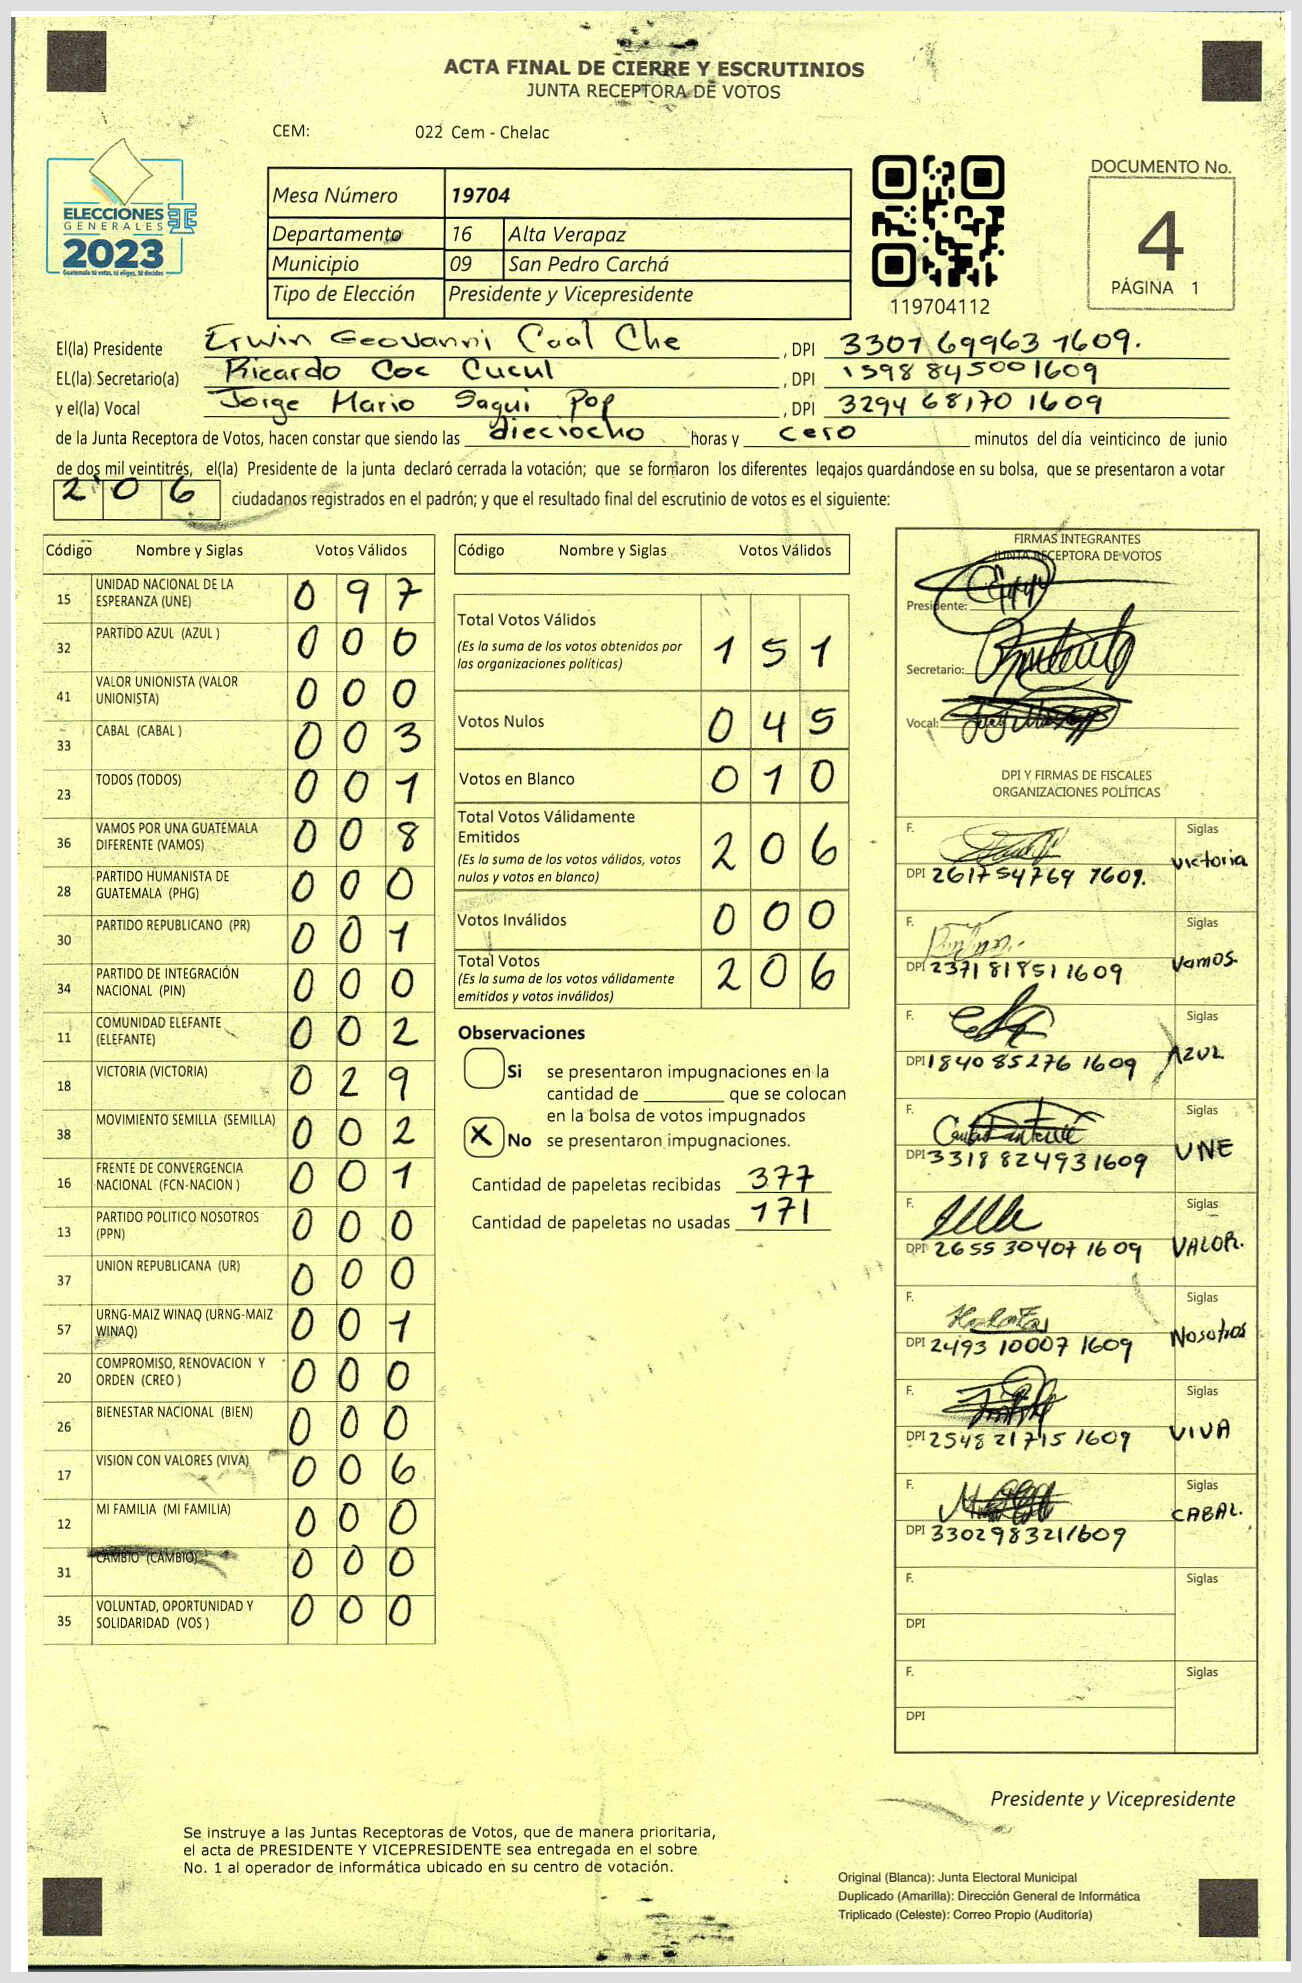 ACTA FINAL DE CIERRE Y ESCRUTINIOS
JUNTA RECEPTORA DE VOTOS
CEM: 022 Cem - Chelac
ELECCIONES
GENERALES
2023
Guatemala tú votas, tú eliges, tú decides
Mesa Número 19704
Departamento 16 Alta Verapaz
Municipio 09 San Pedro Carchá
Tipo de Elección Presidente y Vicepresidente
119704112
DOCUMENTO No.
4
PÁGINA 1
El(la) Presidente Erwin Geovanni Caal Che , DPI 3301 69963 1609.
EL(la) Secretario(a) Ricardo Coc Cucul , DPI 1598 84500 1609
y el(la) Vocal Jorge Mario Saqui Pop , DPI 3294 68170 1609
de la Junta Receptora de Votos, hacen constar que siendo las dieciocho horas y cero minutos del día veinticinco de junio
de dos mil veintitrés, el(la) Presidente de la junta declaró cerrada la votación; que se formaron los diferentes legajos guardándose en su bolsa, que se presentaron a votar
206 ciudadanos registrados en el padrón; y que el resultado final del escrutinio de votos es el siguiente:
Código Nombre y Siglas Votos Válidos
15 UNIDAD NACIONAL DE LA ESPERANZA (UNE) 0 9 7
32 PARTIDO AZUL (AZUL ) 0 0 0
41 VALOR UNIONISTA (VALOR UNIONISTA) 0 0 0
33 CABAL (CABAL ) 0 0 3
23 TODOS (TODOS) 0 0 1
36 VAMOS POR UNA GUATEMALA DIFERENTE (VAMOS) 0 0 8
28 PARTIDO HUMANISTA DE GUATEMALA (PHG) 0 0 0
30 PARTIDO REPUBLICANO (PR) 0 0 1
34 PARTIDO DE INTEGRACIÓN NACIONAL (PIN) 0 0 0
11 COMUNIDAD ELEFANTE (ELEFANTE) 0 0 2
18 VICTORIA (VICTORIA) 0 2 9
38 MOVIMIENTO SEMILLA (SEMILLA) 0 0 2
16 FRENTE DE CONVERGENCIA NACIONAL (FCN-NACION ) 0 0 1
13 PARTIDO POLITICO NOSOTROS (PPN) 0 0 0
37 UNION REPUBLICANA (UR) 0 0 0
57 URNG-MAIZ WINAQ (URNG-MAIZ WINAQ) 0 0 1
20 COMPROMISO, RENOVACION Y ORDEN (CREO ) 0 0 0
26 BIENESTAR NACIONAL (BIEN) 0 0 0
17 VISION CON VALORES (VIVA) 0 0 6
12 MI FAMILIA (MI FAMILIA) 0 0 0
31 CAMBIO (CAMBIO) 0 0 0
35 VOLUNTAD, OPORTUNIDAD Y SOLIDARIDAD (VOS ) 0 0 0
Código Nombre y Siglas Votos Válidos
Total Votos Válidos 1 5 1
(Es la suma de los votos obtenidos por
las organizaciones políticas)
Votos Nulos 0 4 5
Votos en Blanco 0 1 0
Total Votos Válidamente
Emitidos 2 0 6
(Es la suma de los votos válidos, votos
nulos y votos en blanco)
Votos Inválidos 0 0 0
Total Votos 2 0 6
(Es la suma de los votos válidamente
emitidos y votos inválidos)
Observaciones
Si se presentaron impugnaciones en la
cantidad de ________ que se colocan
en la bolsa de votos impugnados
X No se presentaron impugnaciones.
Cantidad de papeletas recibidas 377
Cantidad de papeletas no usadas 171
FIRMAS INTEGRANTES
JUNTA RECEPTORA DE VOTOS
Presidente:
Secretario:
Vocal:
DPI Y FIRMAS DE FISCALES
ORGANIZACIONES POLÍTICAS
F. Siglas
DPI 2617 54769 1609. Victoria
F. Siglas
DPI 2371 81851 1609 Vamos.
F. Siglas
DPI 1840 85276 1609 AZUL
F. Siglas
DPI 3318 82493 1609 UNE
F. Siglas
DPI 2655 30407 1609 VALOR.
F. Siglas
DPI 2493 10007 1609 Nosotros
F. Siglas
DPI 2548 21715 1609 VIVA
F. Siglas
DPI 3302983211609 CABAL.
F. Siglas
DPI
F. Siglas
DPI
Presidente y Vicepresidente
Se instruye a las Juntas Receptoras de Votos, que de manera prioritaria,
el acta de PRESIDENTE Y VICEPRESIDENTE sea entregada en el sobre
No. 1 al operador de informática ubicado en su centro de votación.
Original (Blanca): Junta Electoral Municipal
Duplicado (Amarilla): Dirección General de Informática
Triplicado (Celeste): Correo Propio (Auditoría)